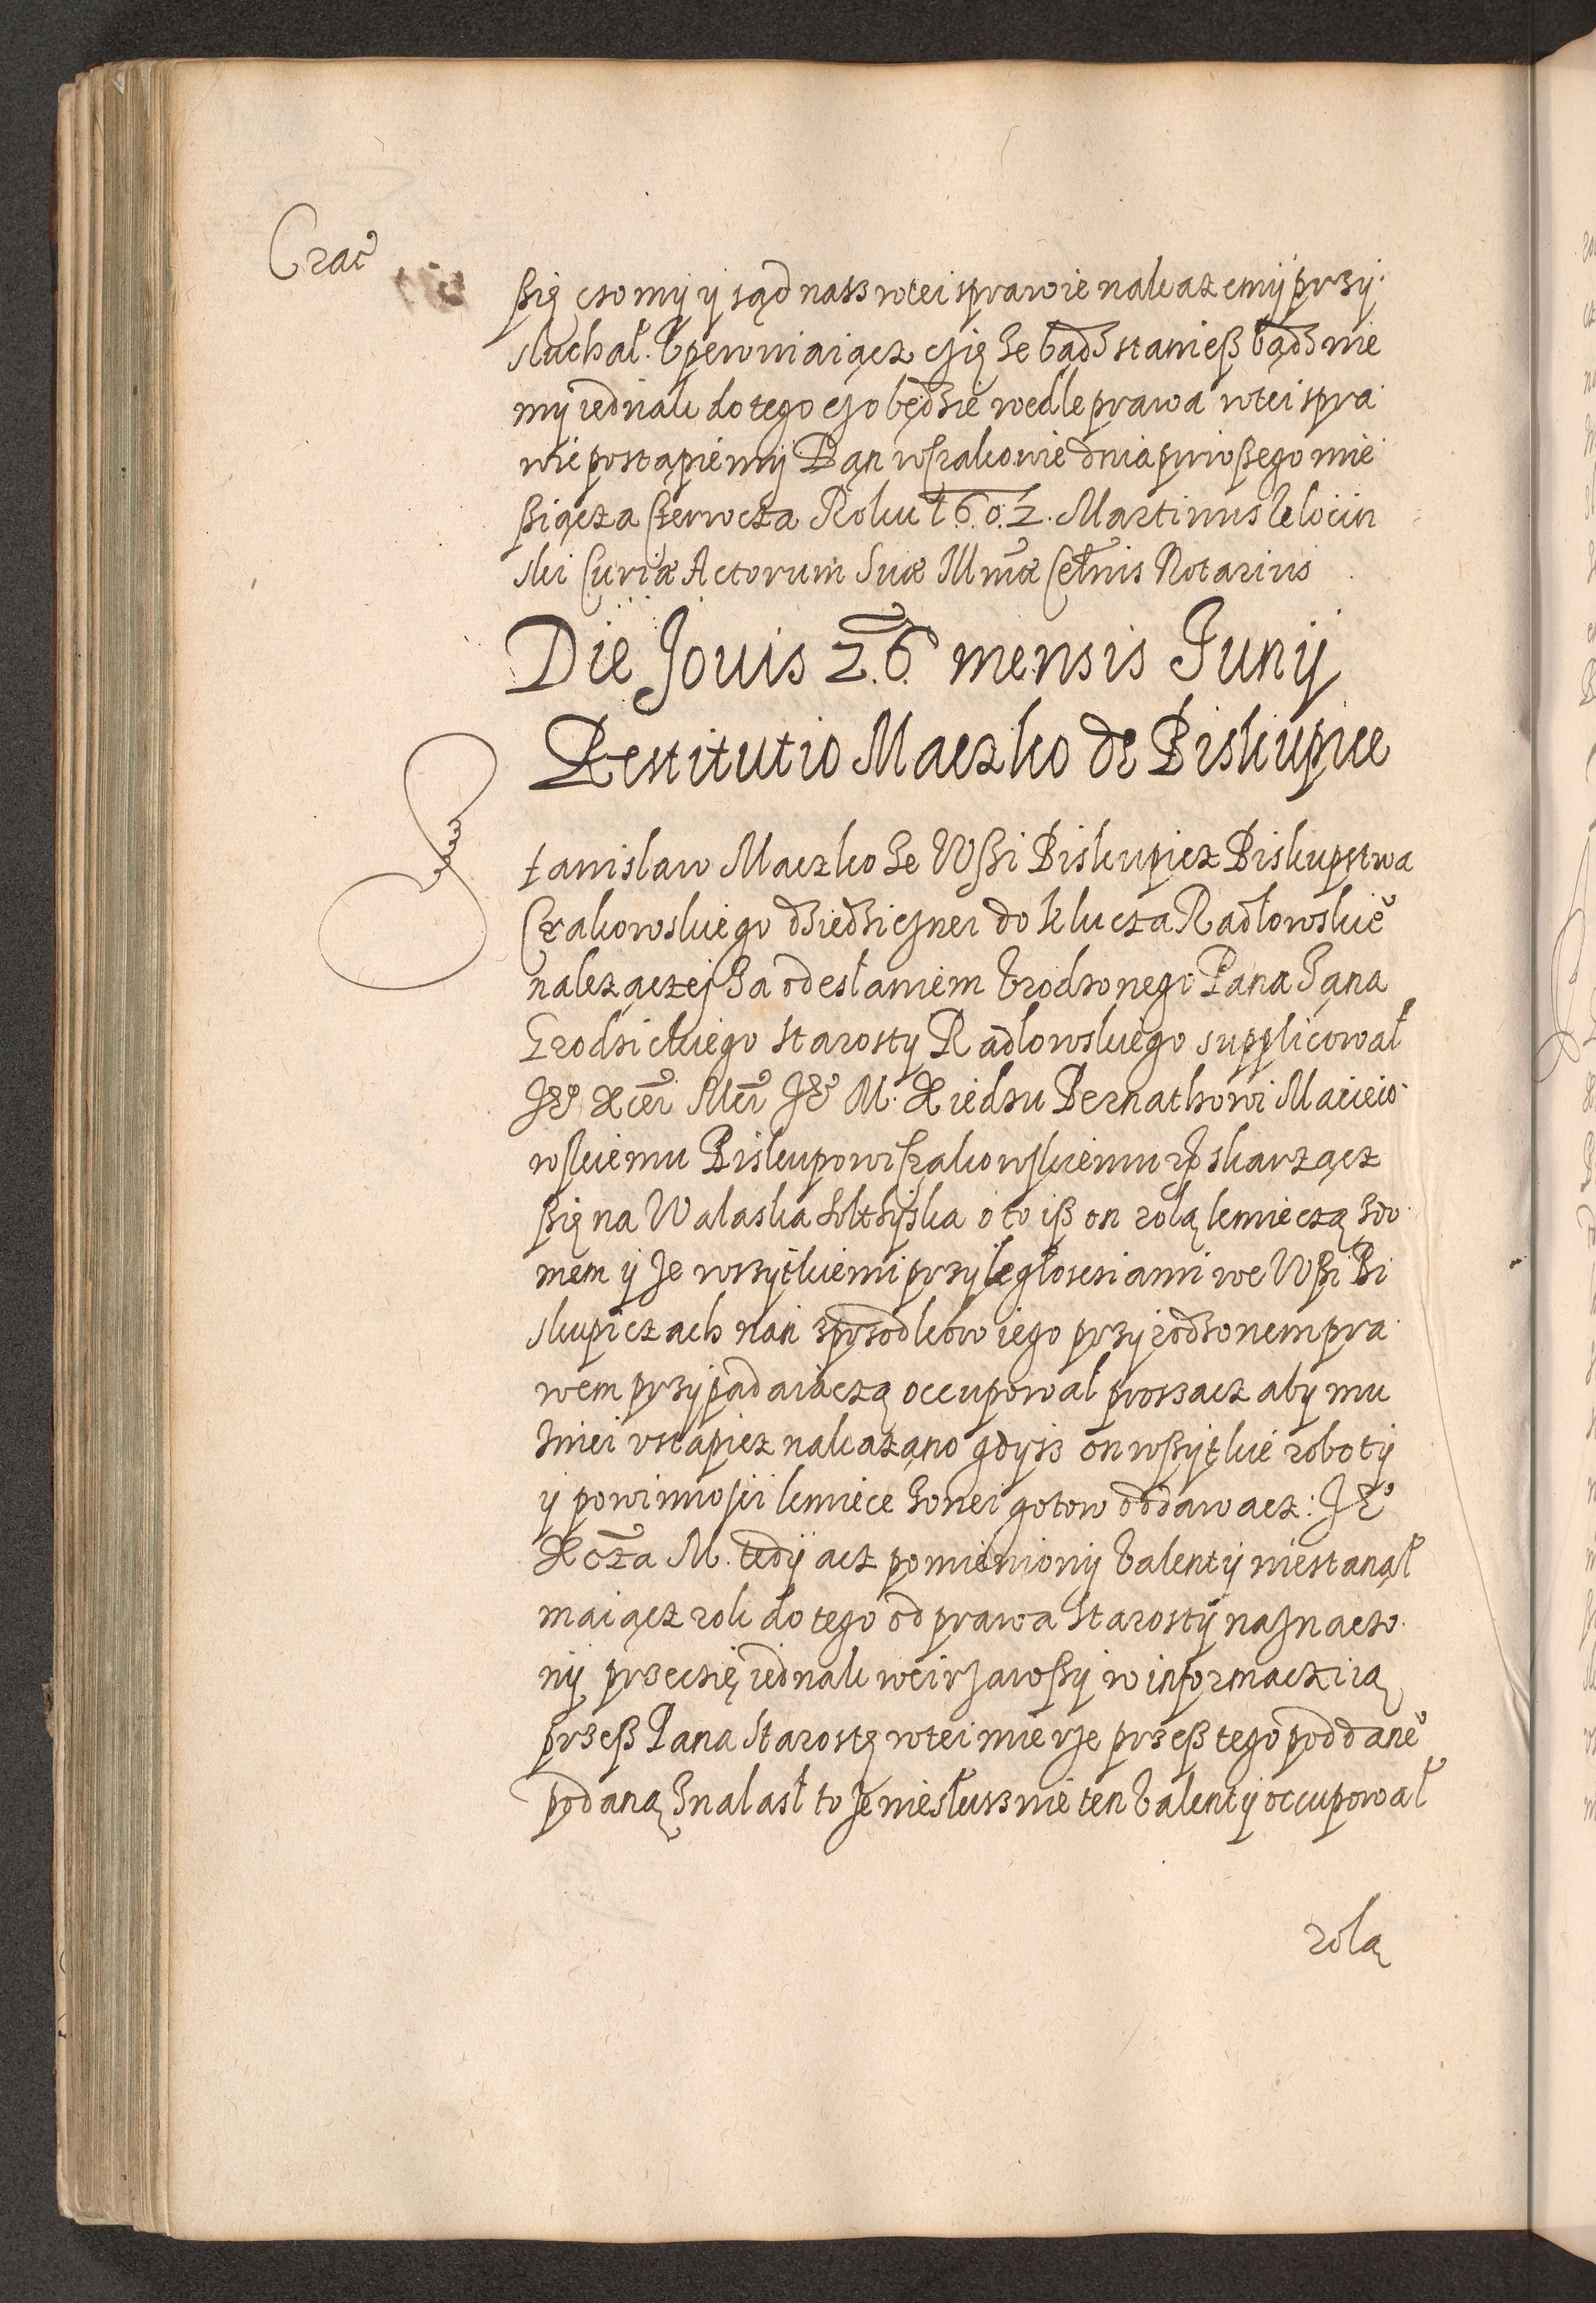 Crac
ßię czo my y sąd nasz wtei sprawie nakażemy przy
słuchał. Upewniaiącz cię że bądź staniesz bądź nie
my iednak do tego czo będzie wedle prawa wtei spra
wie postąpiemy Dan wkrakowie dnia pirwßego mie
ßiącza Czerwcza Roku 1602. Martinus
ski Curiæ Actorum Suæ Illmæ Celnis Notarius
Die Jouis 26 mensis Junij
Restitutio Maczko de Biskupice
Stanislaw Maczko ze Wßi Biskupicz Biskupstwa
Crakowskiego dziedzicznei do klucza Radłowskie
należączej za odesłaniem Urodzonego Pana Jana
Grodzickiego starosty Radlowskiego supplicował
Je Xcei Mci Je M. Xiedzu Bernathowi Macieio
wskiemu Biskupowi Krakowskiemu skarżącz
ßię na Walaska Sołtyska o to iß on rolą kmieczą zdo
mem y ze wszytkiemi przyległosciami we Wßi Bi
skupiczach nań zprzodków iego przyrodzonem pra
wem przypadaiączą occupował proszacz aby mu
zniei ustąpicz nakazano gdysz on wßytkie roboty
y powinnosci kmiece zonei gotow oddawacz: Je
Xcza M. tedy acz pomieniony Valenty niestanął
maiącz rok do tego od prawa Starosty naznaczo
ny przecsię iednak weirzawßy w informacziią
przeß Pana Starostę wtei mierze przeß tego poddane
podaną znalasł to że niesłusznie ten Valenty occupował
rolą